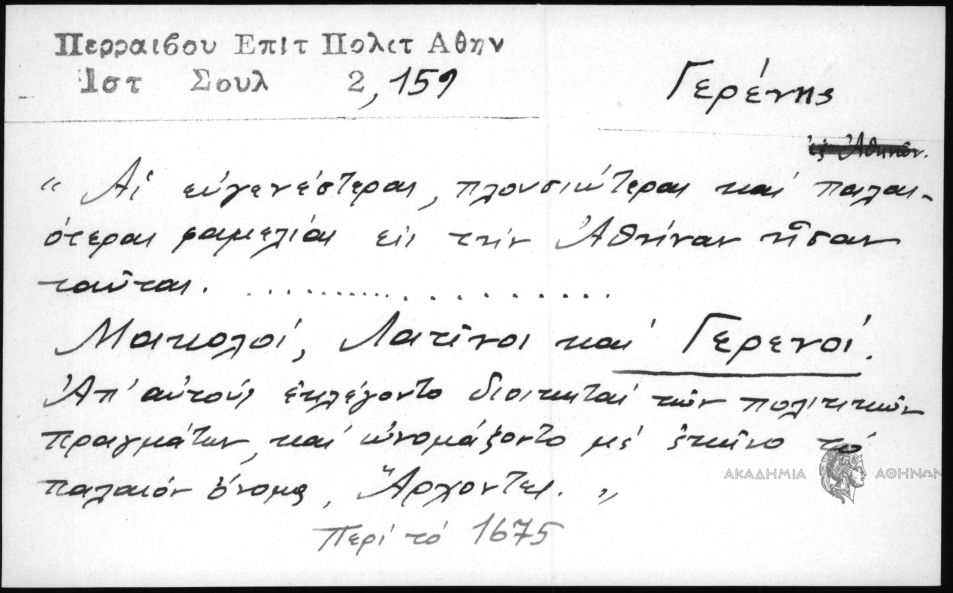 Περραιβου Επιτ Πολιτ Αθην
Ιστ Σουλ 2, 159
Γερένης
ἐξ Ἀθηνῶν.
“ Αἱ εὐγενέστεραι, πλουσιώτεραι καί παλαι-
ότεραι φαμελίαι εἰς τήν Ἀθήναν ἦσαν
ταῦται. ......................
Μακολοί, Λατῖνοι καί Γερενοί.
Ἀπ' αὐτούς ἐκλέγοντο διοικηταί τῶν πολιτικῶν
πραγμάτων, καί ὠνομάζοντο μέ ἐκεῖνο τό
παλαιόν ὄνομα, Ἄρχοντες. ”
ΑΚΑΔΗΜΙΑ ΑΘΗΝΩΝ
Περί τό 1675